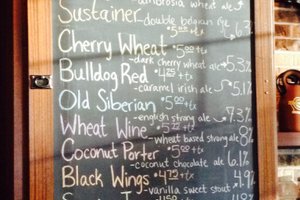 ambrosia wheat ale
Sustainer
double belgian rye 6.3%
$5.00+tx
Cherry Wheat $5.00+tx
dark cherry wheat ale 5.3%
Bulldog Red $4.75+tx
caramel irish ale 5.1%
Old Siberian $5.00+tx
english strong ale 7.3%
Wheat Wine $5.75+tx
wheat based strong ale 8%
Coconut Porter $5.00+tx
coconut chocolate ale 6.1%
Black Wings $4.75+tx
vanilla sweet stout 4.9%